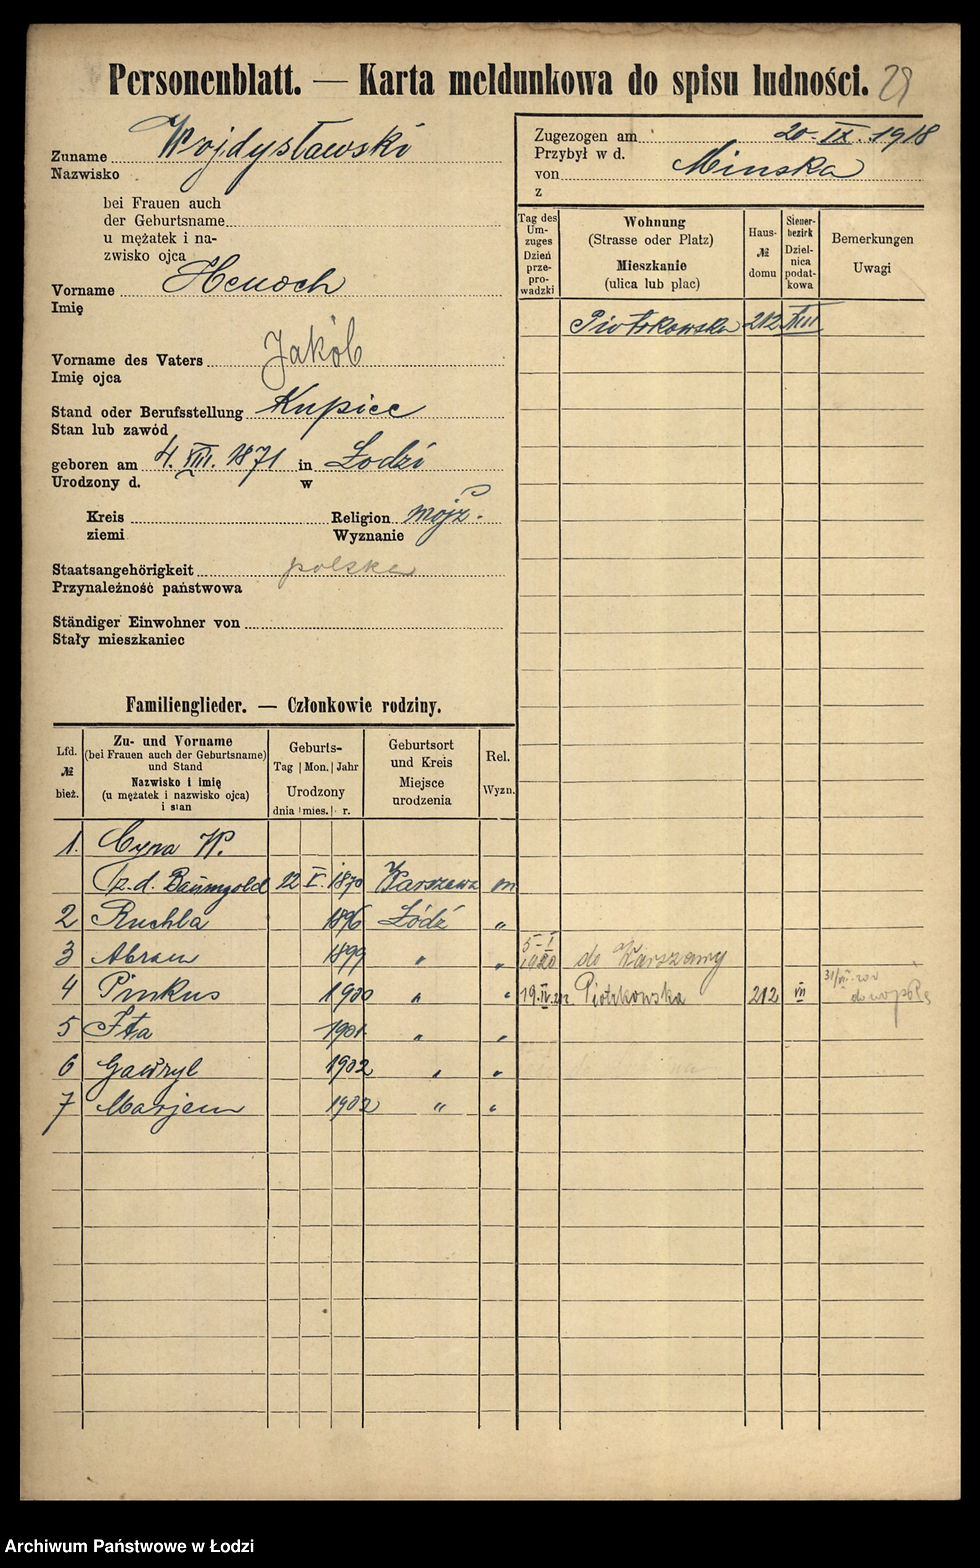 Personenblatt. — Karta meldunkowa do spisu ludności. 29
Zuname Wojdysławski
Nazwisko
bei Frauen auch
der Geburtsname
u mężatek i na-
zwisko ojca
Vorname Henoch
Imię
Vorname des Vaters Jakób
Imię ojca
Stand oder Berufsstellung Kupiec
Stan lub zawód
geboren am 4. VIII. 1871 in Łodzi
Urodzony d. w
Kreis Religion mojż.
ziemi Wyznanie
Staatsangehörigkeit polska
Przynależność państwowa
Ständiger Einwohner von
Stały mieszkaniec
Zugezogen am 20-IX.1918
Przybył w d.
von Minska
z
Tag des Um-zuges Dzień prze-pro-wadzki
Wohnung
(Strasse oder Platz)
Mieszkanie
(ulica lub plac)
Haus-
№
domu
Steuer-bezirk
Dziel-nica podat-kowa
Bemerkungen
Uwagi
Piotrkowska 212 VIII
Familienglieder. — Członkowie rodziny.
Lfd.
№
bież.
Zu- und Vorname
(bei Frauen auch der Geburtsname)
und Stand
Nazwisko i imię
(u mężatek i nazwisko ojca)
i stan
Geburts-
Tag Mon. Jahr
Urodzony
dnia mies. r.
Geburtsort
und Kreis
Miejsce
urodzenia
Rel.
Wyzn.
1. Cyna W.
z.d. Baumgold 22 V. 1870 Warszawa m
2 Ruchla 1896 Łódź "
3 Abram 1899 " " 5-I 1920 do Warszawy
4 Pinkus 1900 " " 19.IV. Piotrkowska 212 VII
5 Ita 1901 " "
6 Gawryl 1902 " "
7 Marjem 1902 " "
Archiwum Państwowe w Łodzi